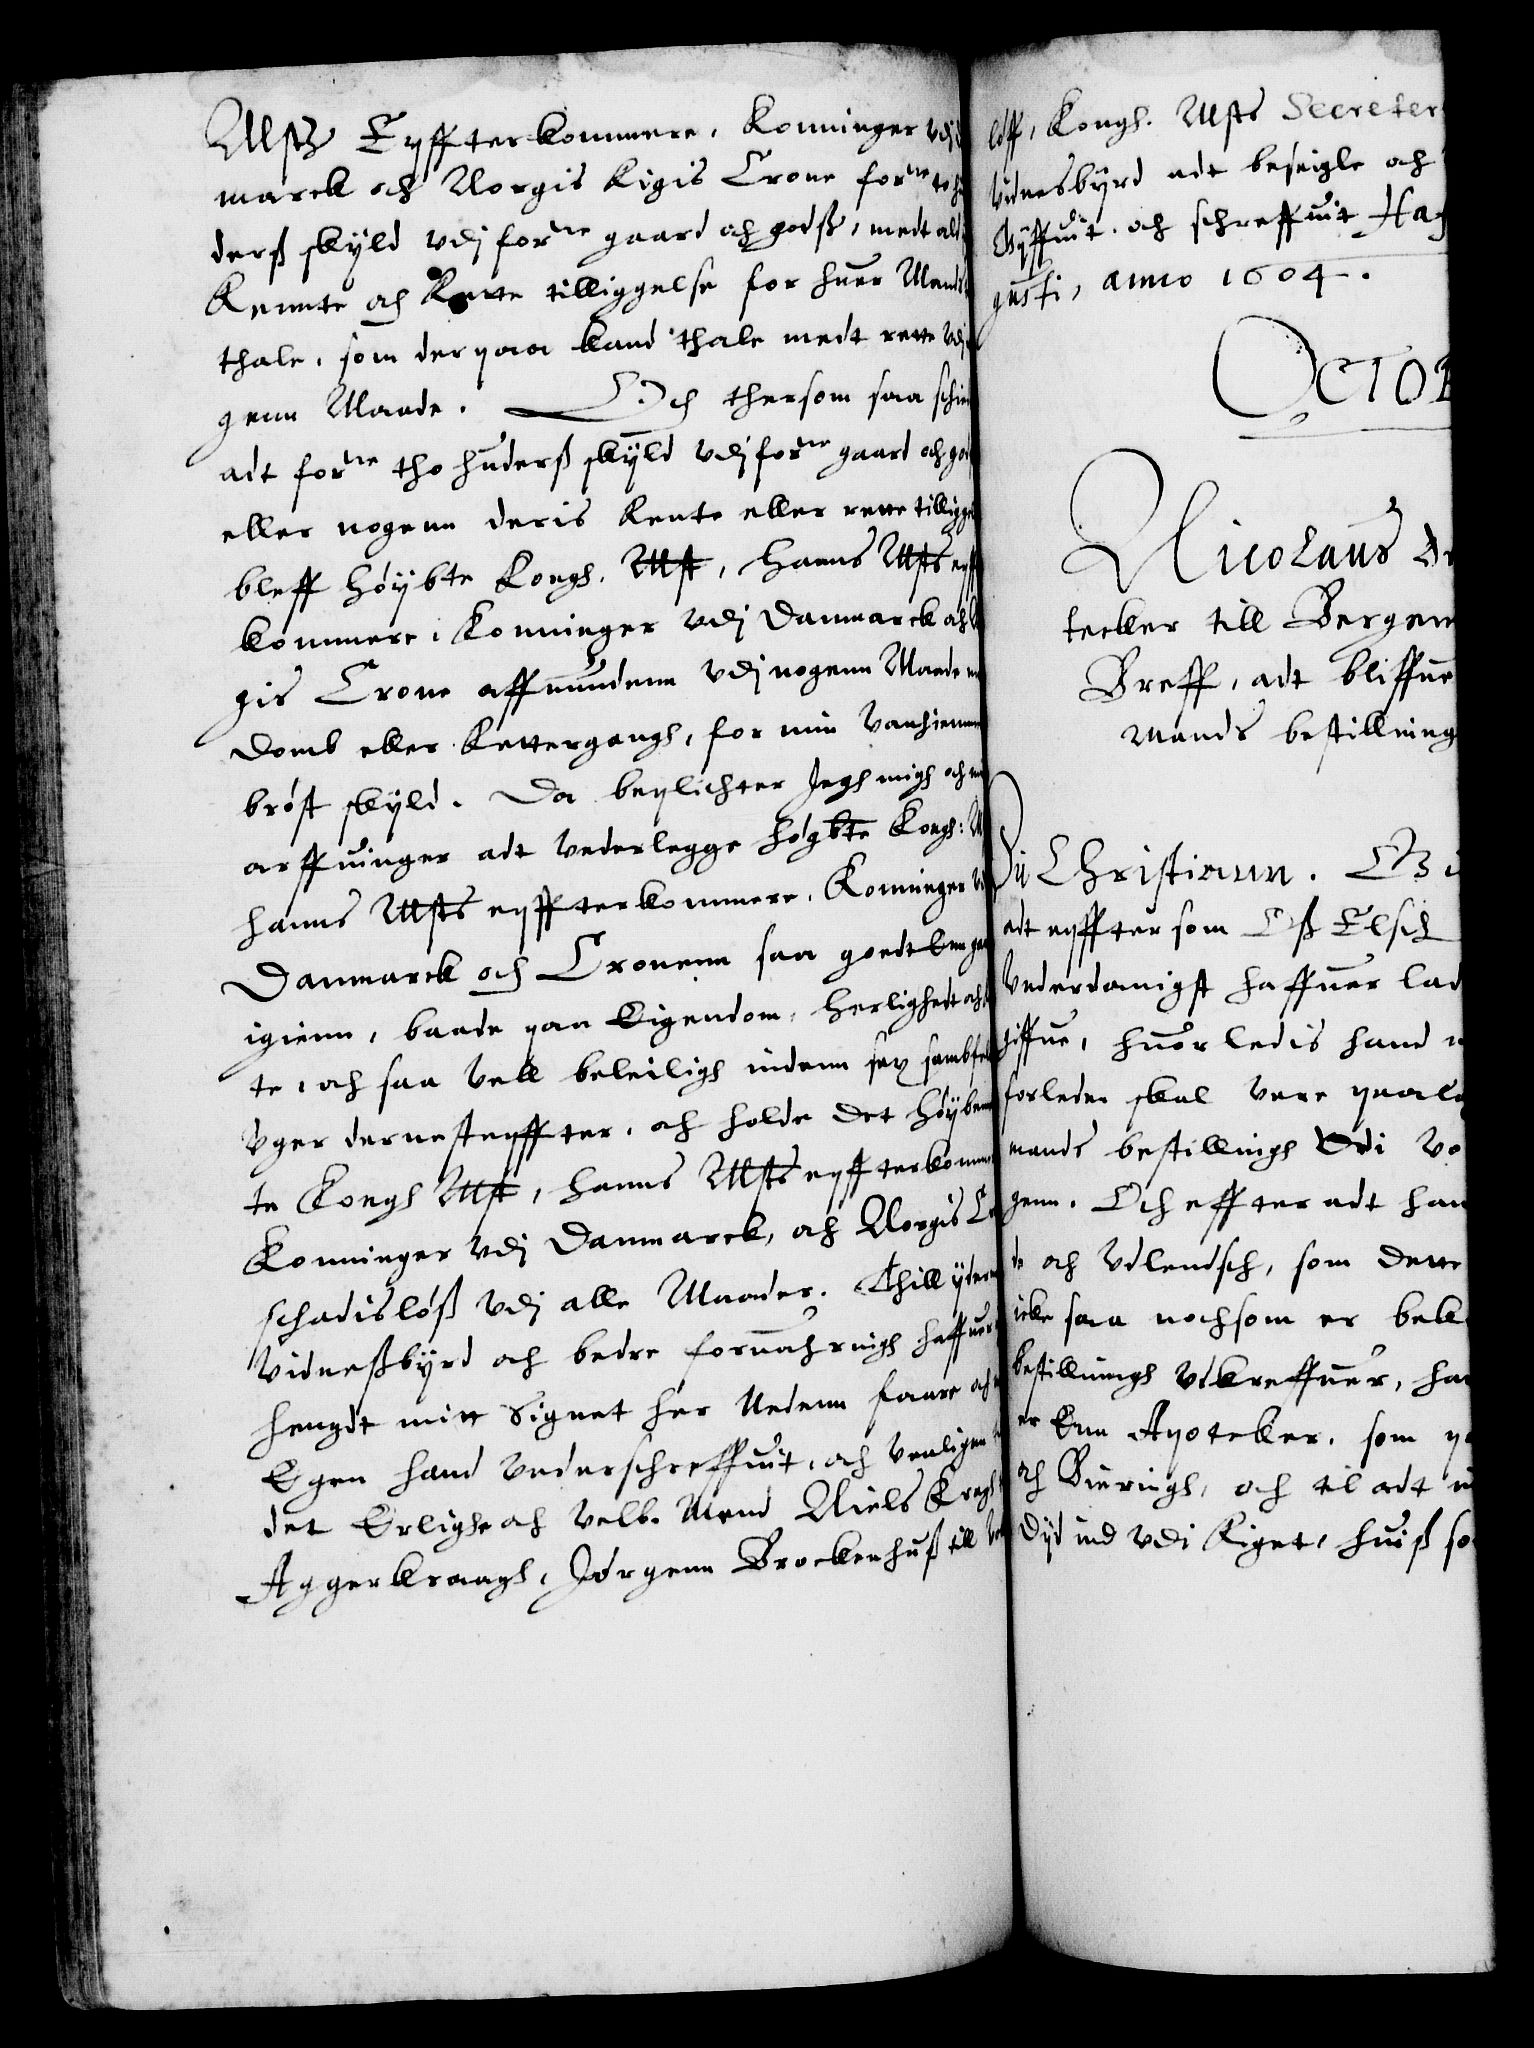 Mstz Eyffterkommere, Konninger vdj
marck och Norgis Rigis Crone forne to hu
derß skyld vdj forne gaard och godß, medt ald
Rennte och Rette tilliggelse for huer Mands
thale, som derpaa kand thale medt rette vdj
genn Maade. Och thersom saa schie
adt forne tho huderß skyld vdj forne gaard och god
eller nogenn deris Rente eller rette tillígge
bleff höybte Kongh. Mst, hanns Msts eyff
kommere, Konninger vdj Danmarck och
gis Crone affvundenn vdj nogenn Maade
Domb eller Rettergangh, for min vanhiemmel
bröst skyld. Da beplichter Jegh migh och
arffuinger adt vederlegge högbte Kongh: M
hanns Msts eyffterkommere, Konninger v
Danmarck och Cronenn saa goedt
igienn, baade paa Eigendom, herlighedt och
te, och saa vell beleiligh indenn sex sambf
Vger dernesteyffter, och holde det höyben
te Kongh Mst, hanns Msts eyffterkomme
Konninger vdj Danmarck, och Norgis C
schadislöß vdj alle Maader. Thill yder
Vidneßbyrd och bedre foruahringh haffuer
hengdt mitt Signet her Nedenn faare och
Egen hand vnderschreffuit, och venligen
det Erlighe och velb. Mend Niels Kragh
Aggerkraagh, Jörgenn Brockenhuß till
löff, Kongh. Msts Secreter
Vidnesbyrd adt beseigle och
Gyffuit och schreffuit Haf
gusti, anno 1604.
OCTOB
Nicolaus
tecker till Bergen
Breff, adt bliffue
mands bestilling
Vii Christiann. G
adt eyffter som Oß Elsch
Vnderdanigst haffuer lad
giffue, huorledis hand
forleden skal vere paala
mands bestillingh Vdi Vo
genn. Och effter adt han
de och Vdlendsch, som dette
icke saa nochsom er bek
bestillingh Vdkreffuer, ha
er Enn Apotecker, som p
och Nieringh, och til adt
Dyd ind vdi Riget, huiß so